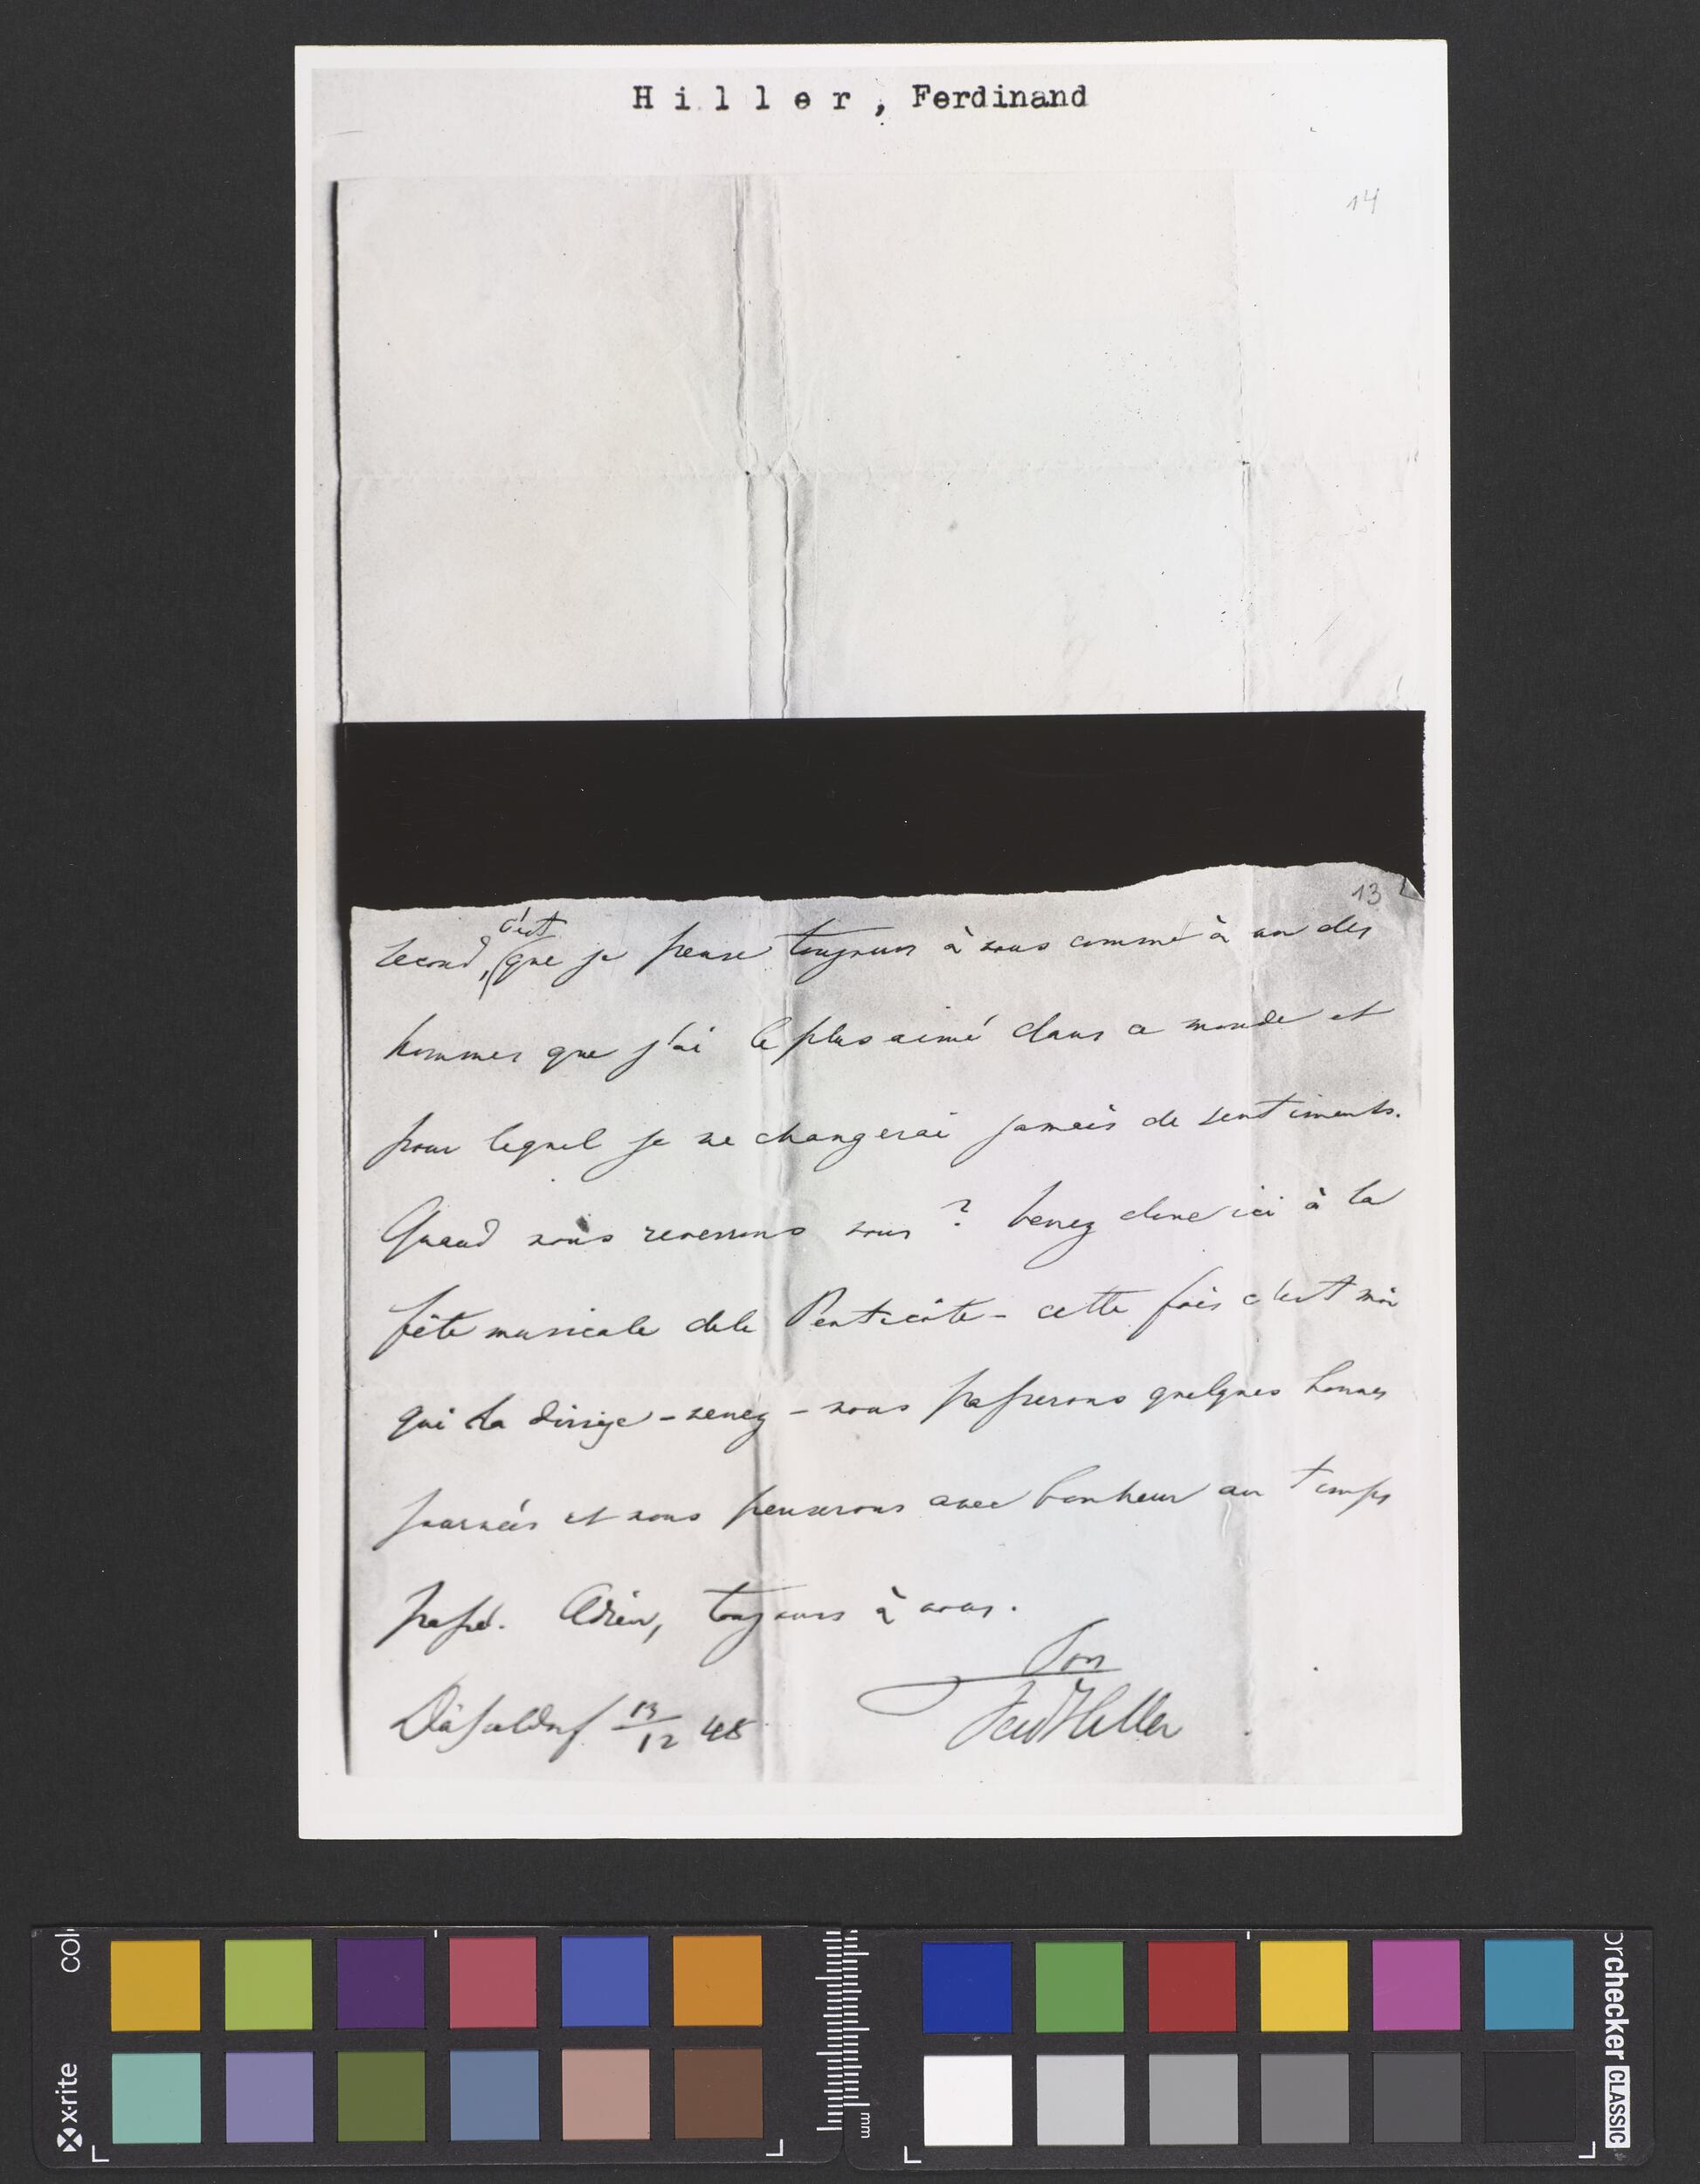 Hiller, Ferdinand
14
13
c'est
second, que je pense toujours à vous comme à un des
hommes que j'ai le plus aimé dans ce monde et
pour lequel je ne changerai jamais de sentiments.
Quand nous reverrons nous? Venez donc ici à la
fête musicale de la Pentecôte - cette fois c'est moi
qui la dirige - venez - nous passerons quelques bonnes
journées et nous penserons avec bonheur au temps
passé. Adieu, toujours à vous.
Ferd Hiller
Düsseldorf 13/12 48
x-rite
colorchecker CLASSIC
mm